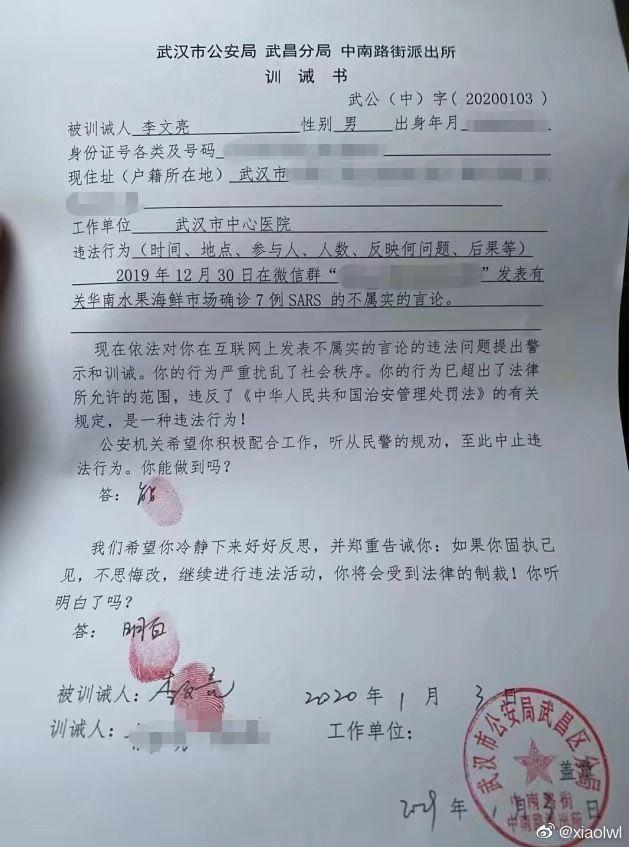 武汉市公安局 武昌分局 中南路街派出所
训 诫 书
武公（中）字( 20200103 )
被训诫人 李文亮 性别 男 出身年月
身份证号各类及号码
现住址（户籍所在地） 武汉市
工作单位 武汉市中心医院
违法行为（时间、地点、参与人、人数、反映何问题、后果等）
2019 年 12 月 30 日在微信群“ ”发表有
关华南水果海鲜市场确诊 7 例 SARS 的不属实的言论。
现在依法对你在互联网上发表不属实的言论的违法问题提出警
示和训诫。你的行为严重扰乱了社会秩序。你的行为已超出了法律
所允许的范围，违反了《中华人民共和国治安管理处罚法》的有关
规定，是一种违法行为！
公安机关希望你积极配合工作，听从民警的规劝，至此中止违
法行为。你能做到吗？
答： 能
我们希望你冷静下来好好反思，并郑重告诫你：如果你固执己
见，不思悔改，继续进行违法活动，你将会受到法律的制裁！你听
明白了吗？
答： 明白
被训诫人： 李文亮 2020 年 1 月 3 日
训诫人： 工作单位：
武汉市公安局武昌区分局
盖章
中南路街
中南路派出所
年 1 月 3 日
@xiaolwl